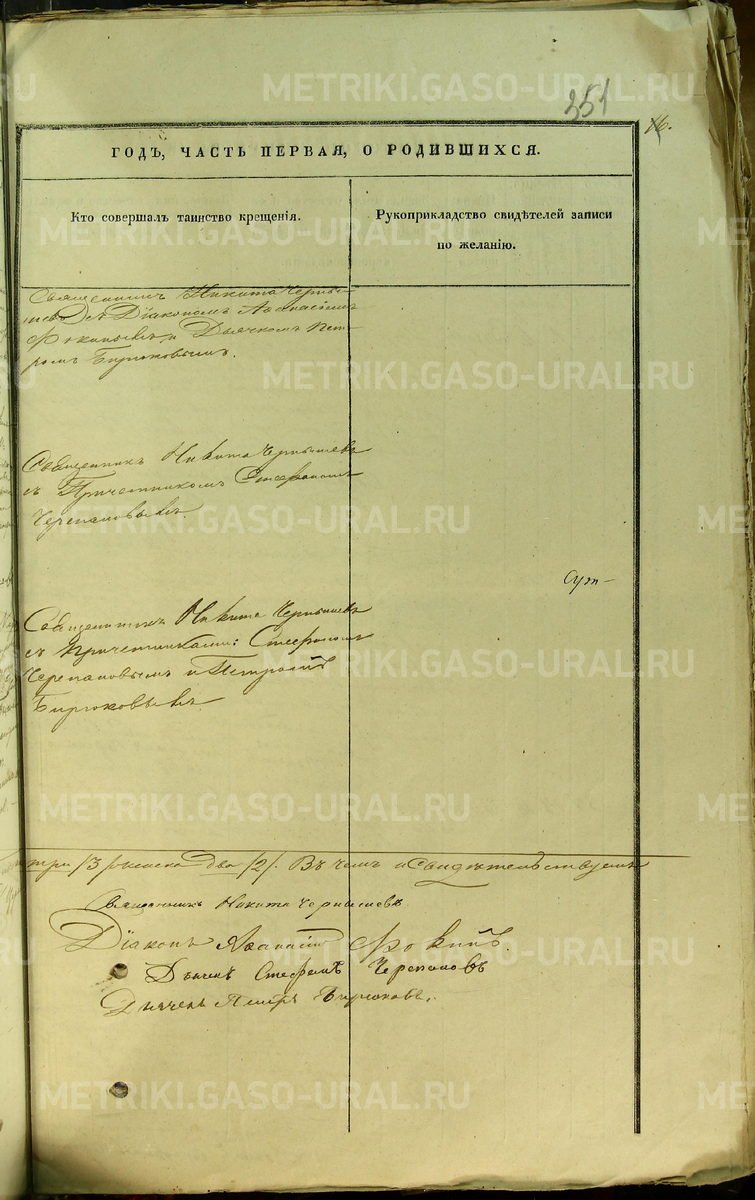 METRIKI.GASO-URAL.RU
351
16.
ГОДЪ, ЧАСТЬ ПЕРВАЯ, О РОДИВШИХСЯ.
Кто совершалъ таинство крещенія.
Рукоприкладство свидѣтелей записи
по желанію.
Священникъ Никита Черны-
шевъ съ Діакономъ Аѳанасіемъ
Фокинымъ и Дьячкомъ Пет-
ромъ Бирюковымъ.
Священникъ Никита Чернышевъ
съ Причетникомъ Стефаномъ
Черепановымъ.
Священникъ Никита Чернышевъ
съ Причетниками: Стефаномъ
Черепановымъ и Петромъ
Бирюковымъ.
три /3/ женска два /2/. Въ чемъ и свидѣтельствуемъ
Священникъ Никита Чернышевъ
Діаконъ Аѳанасій Фокинъ.
Дьячекъ Стефанъ Черепановъ
Дьячекъ Петръ Бирюковъ.